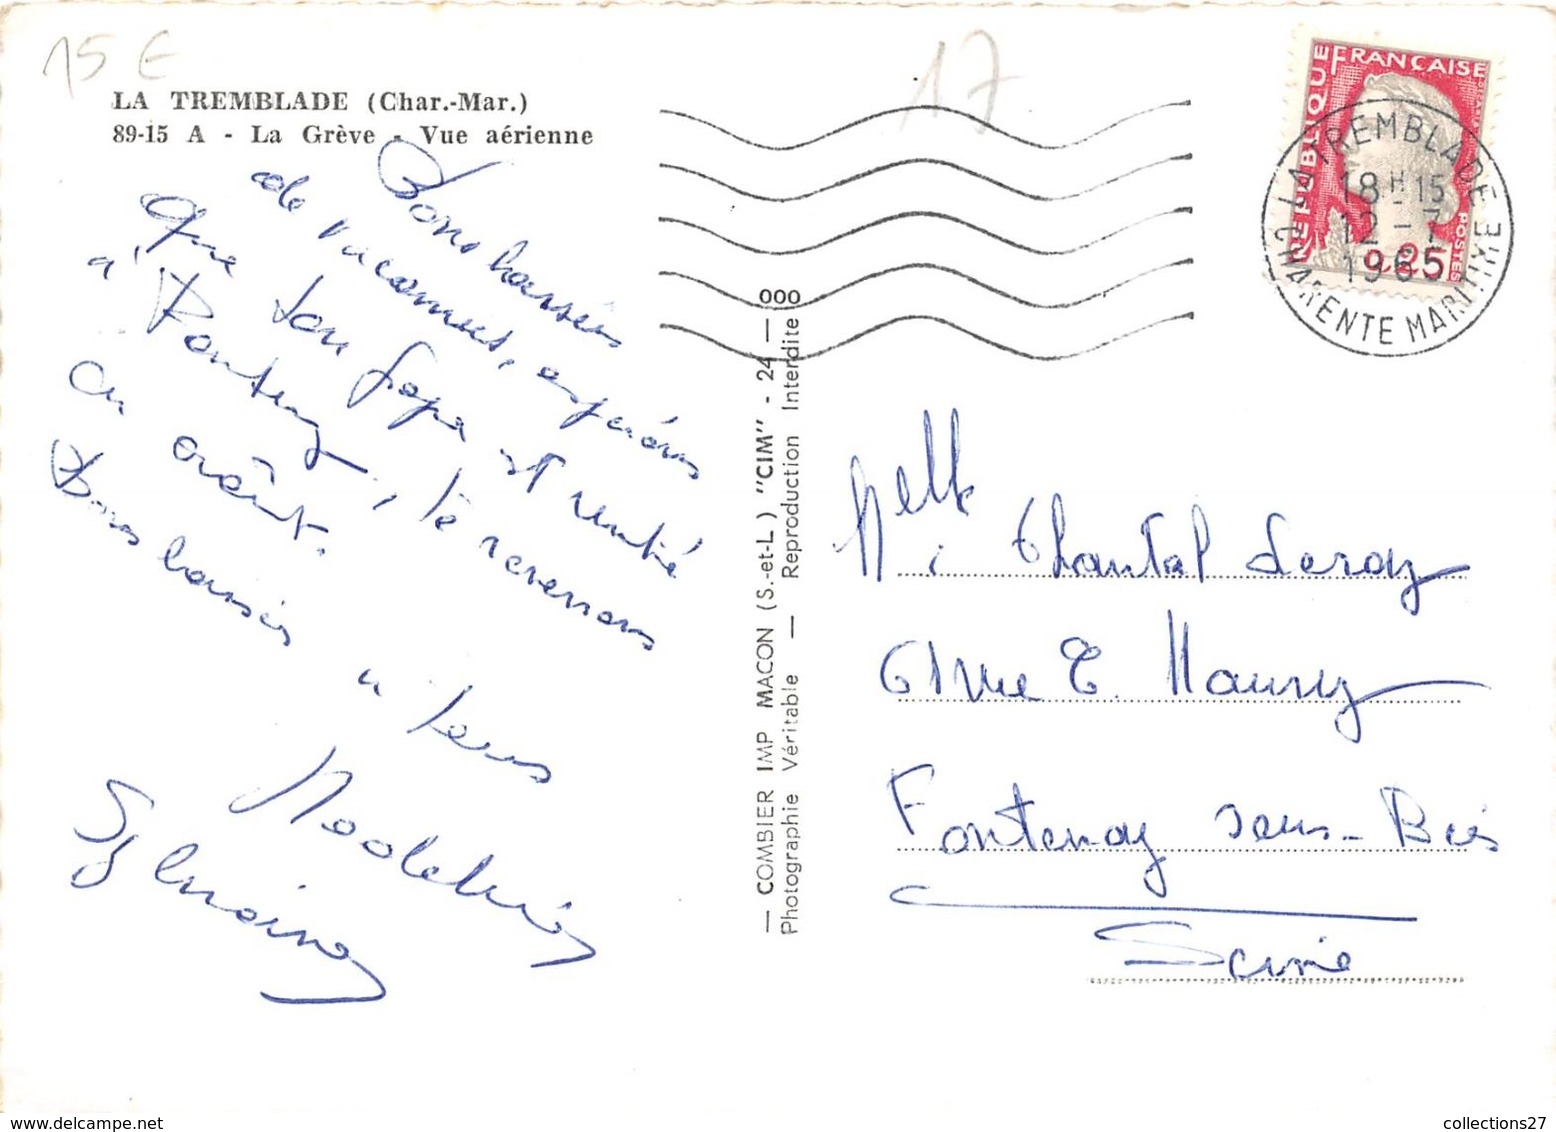 15 E
17
LA TREMBLADE (Char.-Mar.)
89-15 A - La Grève - Vue aérienne
Bons baisers
de vacances, espérons
que ton papa est rentré
à Fontenay, te reverrons
en août.
Bons baisers à tous
Sylvaine
COMBIER IMP MACON (S.-et-L.) "CIM" - 24 — 000
Photographie Véritable — Reproduction Interdite
REPUBLIQUE FRANÇAISE
POSTES
0.25
LA TREMBLADE
18H15
12-7
1965
CHARENTE MARITIME
Melle Chantal Leroy
61 rue E. Maury
Fontenay sous-Bois
Seine
collections27